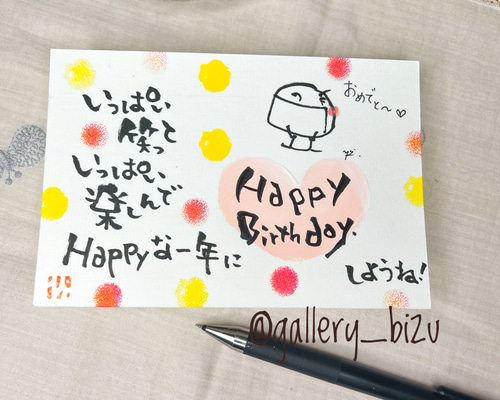 いっぱい
笑って
いっぱい
楽しんで
Happyな一年に
しようね!
おめでと〜♡
Happy
Birthday.
@gallery_bizu